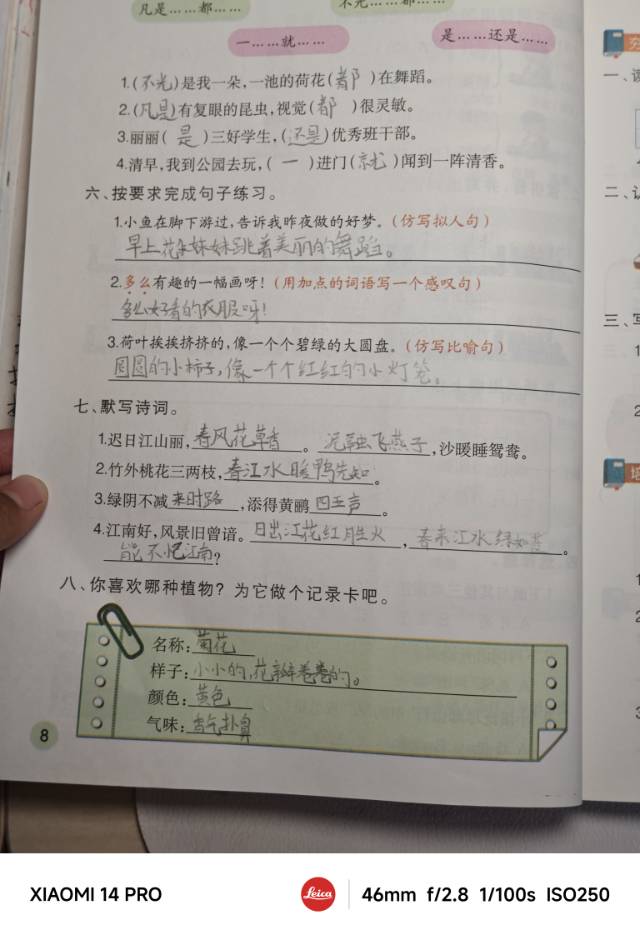 凡是……都……
不光……都……
一……就……
是……还是……
1.(不光)是我一朵,一池的荷花(都)在舞蹈。
2.(凡是)有复眼的昆虫,视觉(都)很灵敏。
3.丽丽(是)三好学生,(还是)优秀班干部。
4.清早,我到公园去玩,(一)进门(就)闻到一阵清香。
六、按要求完成句子练习。
1.小鱼在脚下游过,告诉我昨夜做的好梦。(仿写拟人句)
早上花朵妹妹跳着美丽的舞蹈。
2.多么有趣的一幅画呀!(用加点的词语写一个感叹句)
多么好看的衣服呀!
3.荷叶挨挨挤挤的,像一个个碧绿的大圆盘。(仿写比喻句)
圆圆的小柿子,像一个个红红的小灯笼。
七、默写诗词。
1.迟日江山丽,春风花草香。泥融飞燕子,沙暖睡鸳鸯。
2.竹外桃花三两枝,春江水暖鸭先知。
3.绿阴不减来时路,添得黄鹂四五声。
4.江南好,风景旧曾谙。日出江花红胜火,春来江水绿如蓝。
能不忆江南?
八、你喜欢哪种植物?为它做个记录卡吧。
名称:菊花
样子:小小的,花瓣卷卷的。
颜色:黄色
气味:香气扑鼻
8
一、
二、
三、
XIAOMI 14 PRO
Leica
46mm f/2.8 1/100s ISO250